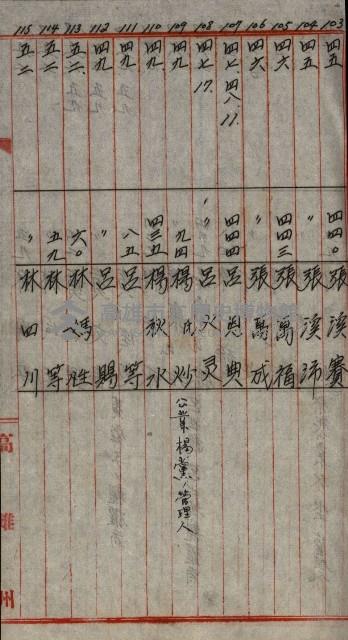 103 四五 四四〇 張溪賽
104 四五 〃 張溪沛
105 四六 四四三 張萬福
106 四六 〃 張萬成
107 四七、四八、11. 四四四 呂恩典
108 四七、17. 〃 呂火灵
109 四九 九四 楊氏炒
110 四九 四三五 楊秋水
公業楊黨ノ管理人
111 四九 八五 呂等
112 四九 〃 呂賜
113 五二 六〇 林馬胜
114 五二 五九 林等
115 五二 〃 林四川
高雄州